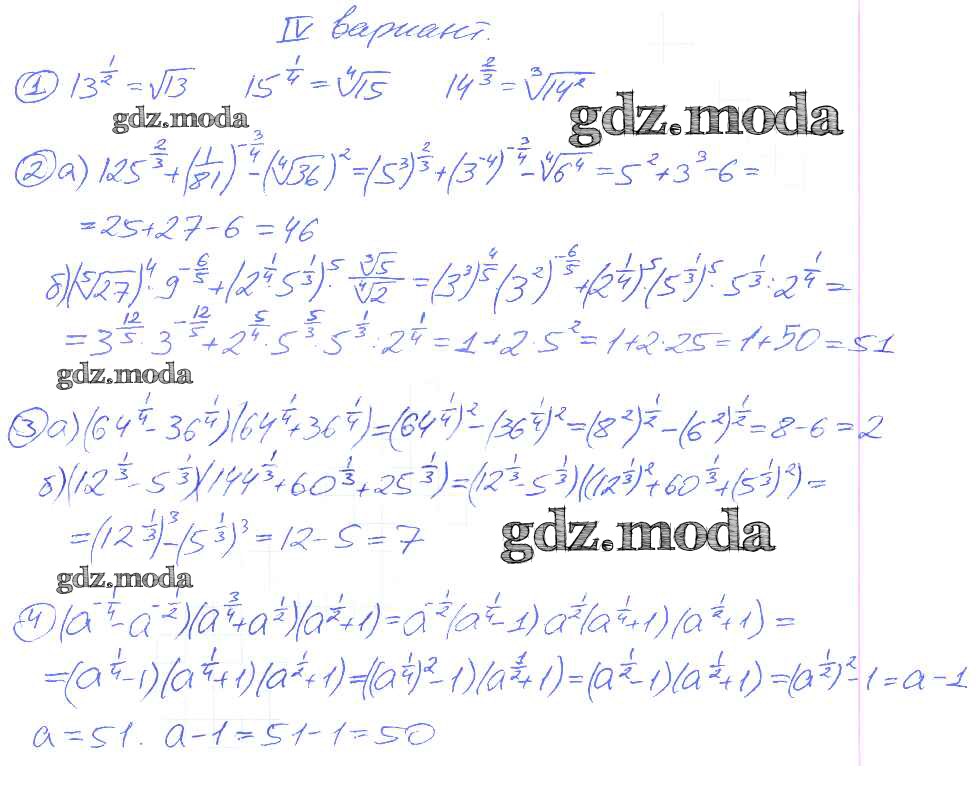 IV вариант.
① 13^(1/2) = √13 15^(1/4) = ⁴√15 14^(2/3) = ³√(14²)
gdz.moda gdz.moda
② а) 125^(2/3) + (1/81)^(-3/4) - (⁴√36)² = (5³)^(2/3) + (3⁻⁴)^(-3/4) - ⁴√(6⁴) = 5² + 3³ - 6 =
= 25 + 27 - 6 = 46
б) (⁵√27)⁴ · 9^(-6/5) + (2^(1/4) 5^(1/3))⁵ · ³√5/⁴√2 = (3³)^(4/5) (3²)^(-6/5) + (2^(1/4))⁵ · (5^(1/3))⁵ · 5^(1/3) : 2^(1/4) =
= 3^(12/5) · 3^(-12/5) + 2^(5/4) · 5^(5/3) · 5^(1/3) : 2^(1/4) = 1 + 2 · 5² = 1 + 2 · 25 = 1 + 50 = 51
gdz.moda
③ а) (64^(1/4) - 36^(1/4))(64^(1/4) + 36^(1/4)) = (64^(1/4))² - (36^(1/4))² = (8²)^(1/2) - (6²)^(1/2) = 8 - 6 = 2
б) (12^(1/3) - 5^(1/3))(144^(1/3) + 60^(1/3) + 25^(1/3)) = (12^(1/3) - 5^(1/3))((12^(1/3))² + 60^(1/3) + (5^(1/3))²) =
= (12^(1/3))³ - (5^(1/3))³ = 12 - 5 = 7
gdz.moda
gdz.moda
④ (a^(-1/4) - a^(-1/2))(a^(3/4) + a^(1/2))(a^(1/2) + 1) = a^(-1/2)(a^(1/4) - 1) a^(1/2)(a^(1/4) + 1)(a^(1/2) + 1) =
= (a^(1/4) - 1)(a^(1/4) + 1)(a^(1/2) + 1) = ((a^(1/4))² - 1)(a^(1/2) + 1) = (a^(1/2) - 1)(a^(1/2) + 1) = (a^(1/2))² - 1 = a - 1
a = 51. a - 1 = 51 - 1 = 50